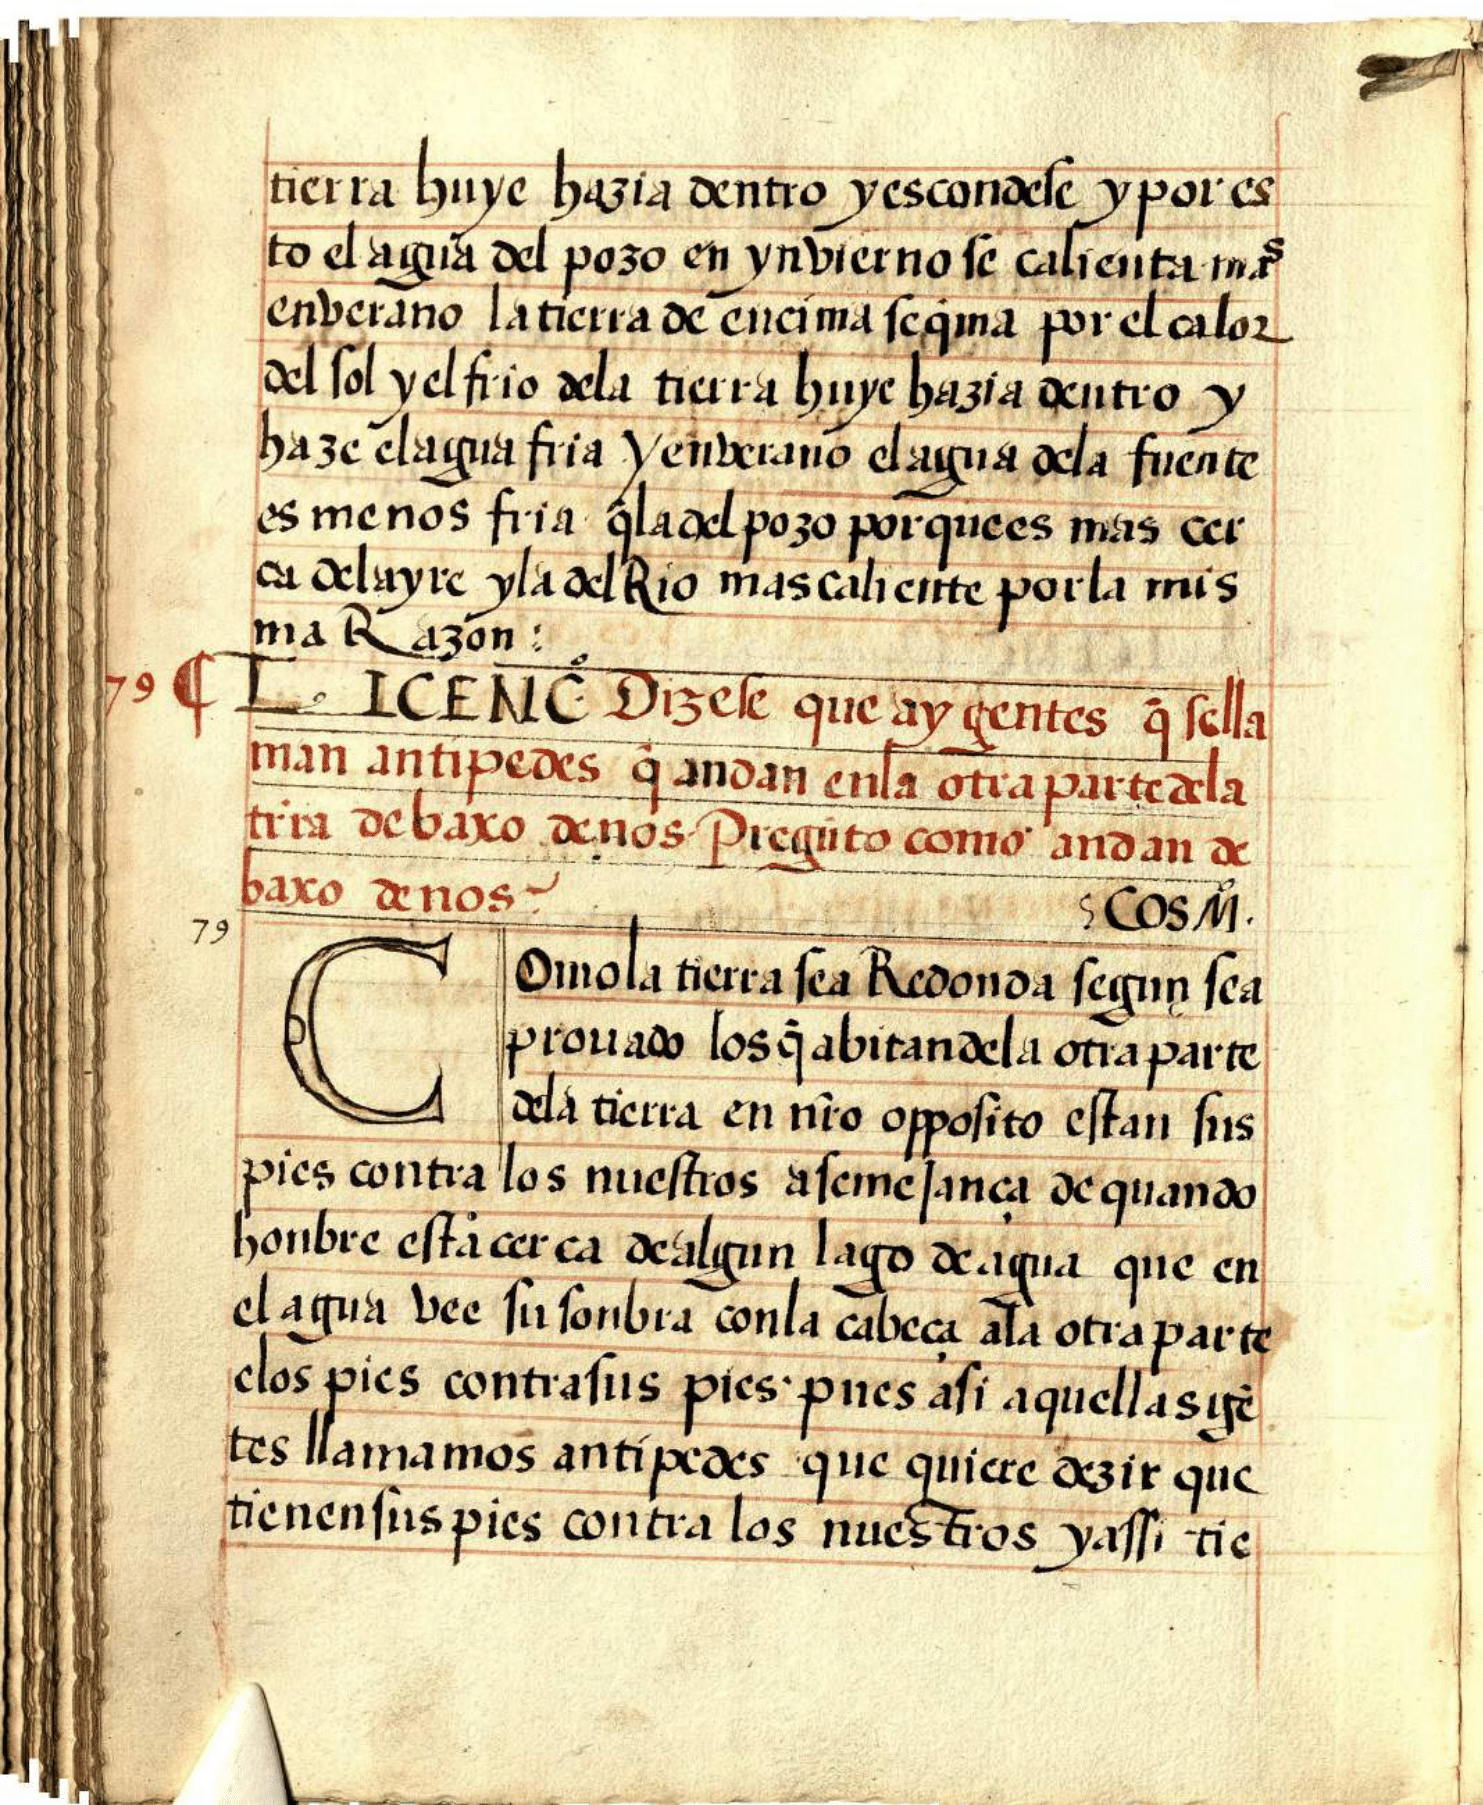 tierra huye hazia dentro yescondese y por es
to el agua del pozo en ynvierno se calienta mas
enverano la tierra de encima seq̃ma por el calor
del sol y el frio dela tierra huye hazia dentro y
haze el agua fria y enverano el agua dela fuente
es menos fria q̃ la del pozo porquees mas cer
ca delayre y la del Rio mas caliente por la mis
ma Razon :
79 ¶ L. ICENC.º Dizese que ay gentes q̃ sella
man antipedes q̃ andan enla otra parte dela
trr̃a debaxo denos. Pregũto como andan de
baxo denos~
: COS M.º
79
COmo la tierra sea Redonda segun sea
prouado los q̃ abitan dela otra parte
dela tierra en nr̃o opposito estan sus
pies contra los nuestros a semejança de quando
honbre está cerca de algun lago de agua que en
el agua vee su sonbra con la cabeça ala otra parte
elos pies contra sus pies. pues asi a quellas gẽ
tes llamamos antipedes que quiere dezir que
tienen sus pies contra los nuestros yassi tie